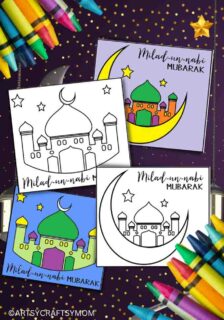 Milad-un-nabi
MUBARAK
Milad-un-nabi
MUBARAK
Milad-un-nabi
MUBARAK
Milad-un-nabi
MUBARAK
©ARTSYCRAFTSYMOM